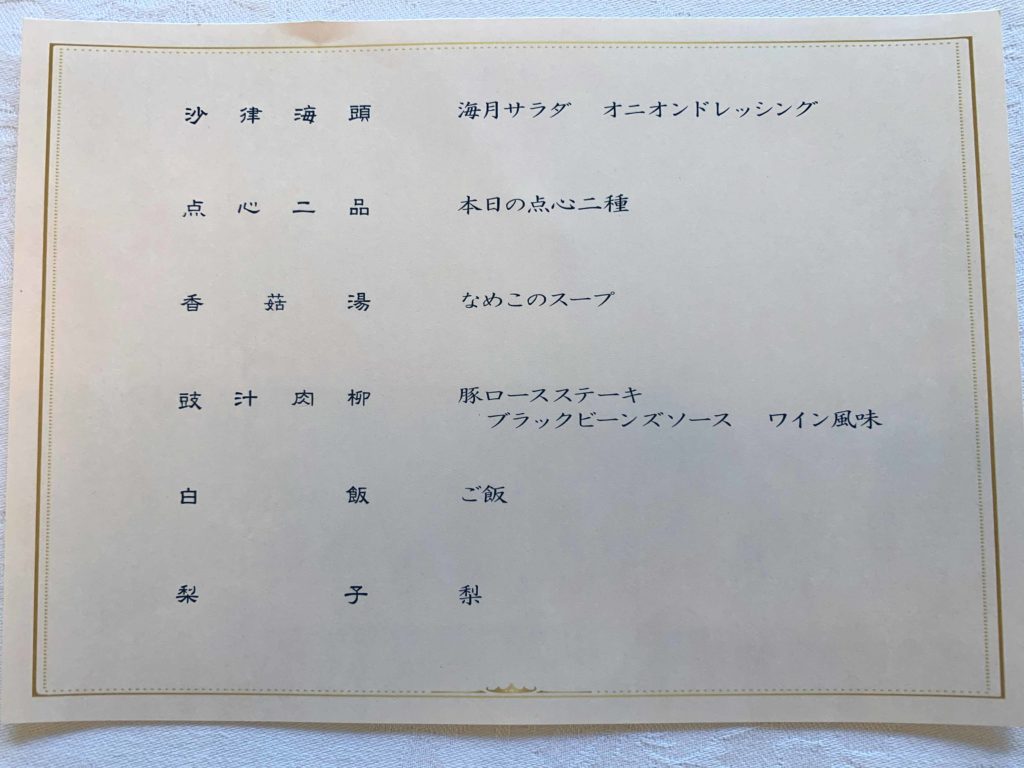 沙律海頭 海月サラダ オニオンドレッシング
点心二品 本日の点心二種
香菇湯 なめこのスープ
豉汁肉柳 豚ロースステーキ
ブラックビーンズソース ワイン風味
白飯 ご飯
梨子 梨